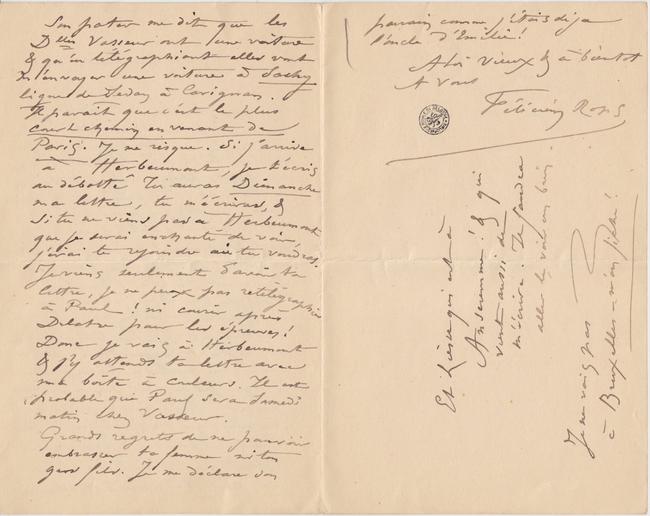 Son pater me dit que les
Dlles Vasseur ont une voiture
& qu'en télégraphiant elles vont
m'envoyer une voiture à Sachy
ligne de Sedan à Carignan.
Il parait que c'est le plus
court chemin en venant de
Paris. Je me risque. Si j'arrive
à Herbeumont, je t'écris
au débotté. Tu auras Dimanche
ma lettre, tu m'écriras, &
si tu ne viens pas à Herbeumont
que je serai enchanté de voir,
j'irai te rejoindre où tu voudras.
Je viens seulement d'avoir ta
lettre, je ne peux pas retélégraphier
à Paul! ni courir après
Delatre pour les épreuves!
Donc je vais à Herbeumont
& j'y attends ta lettre avec
ma boîte à couleurs. Il est
probable que Paul sera Samedi
matin chez Vasseur.
Grands regrets de ne pouvoir
embrasser ta femme ni ton
gros fils. Je me déclare son
parrain comme j'étais déja
l'oncle d'Emilie!
A toi vieux & à bientot
A vous
Félicien Rops
Et Liesse qui est à
Anseremme! & qui
vient aussi de
m'écrire. Il faudra
aller le voir en
Je ne vais pas
à Bruxelles